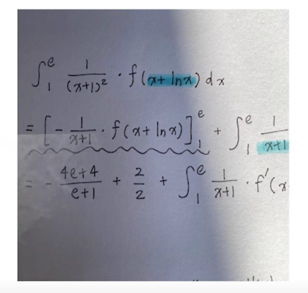 ∫₁ᵉ 1/(x+1)² · f(x+ln x) dx
= [ - 1/(x+1) · f(x+ln x) ]₁ᵉ + ∫₁ᵉ 1/(x+1)
= - (4e+4)/(e+1) + 2/2 + ∫₁ᵉ 1/(x+1) · f'(x